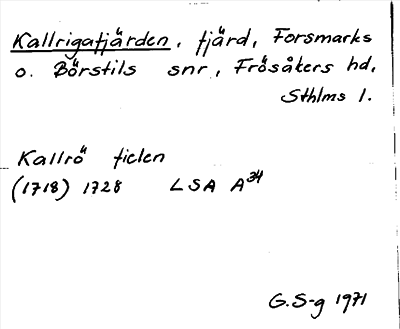 Kallrigafjärden, fjärd, Forsmarks
o. Börstils snr, Frösåkers hd,
Sthlms l.
Kallrö fielen
(1718) 1728 LSA A34
G.S-g 1971